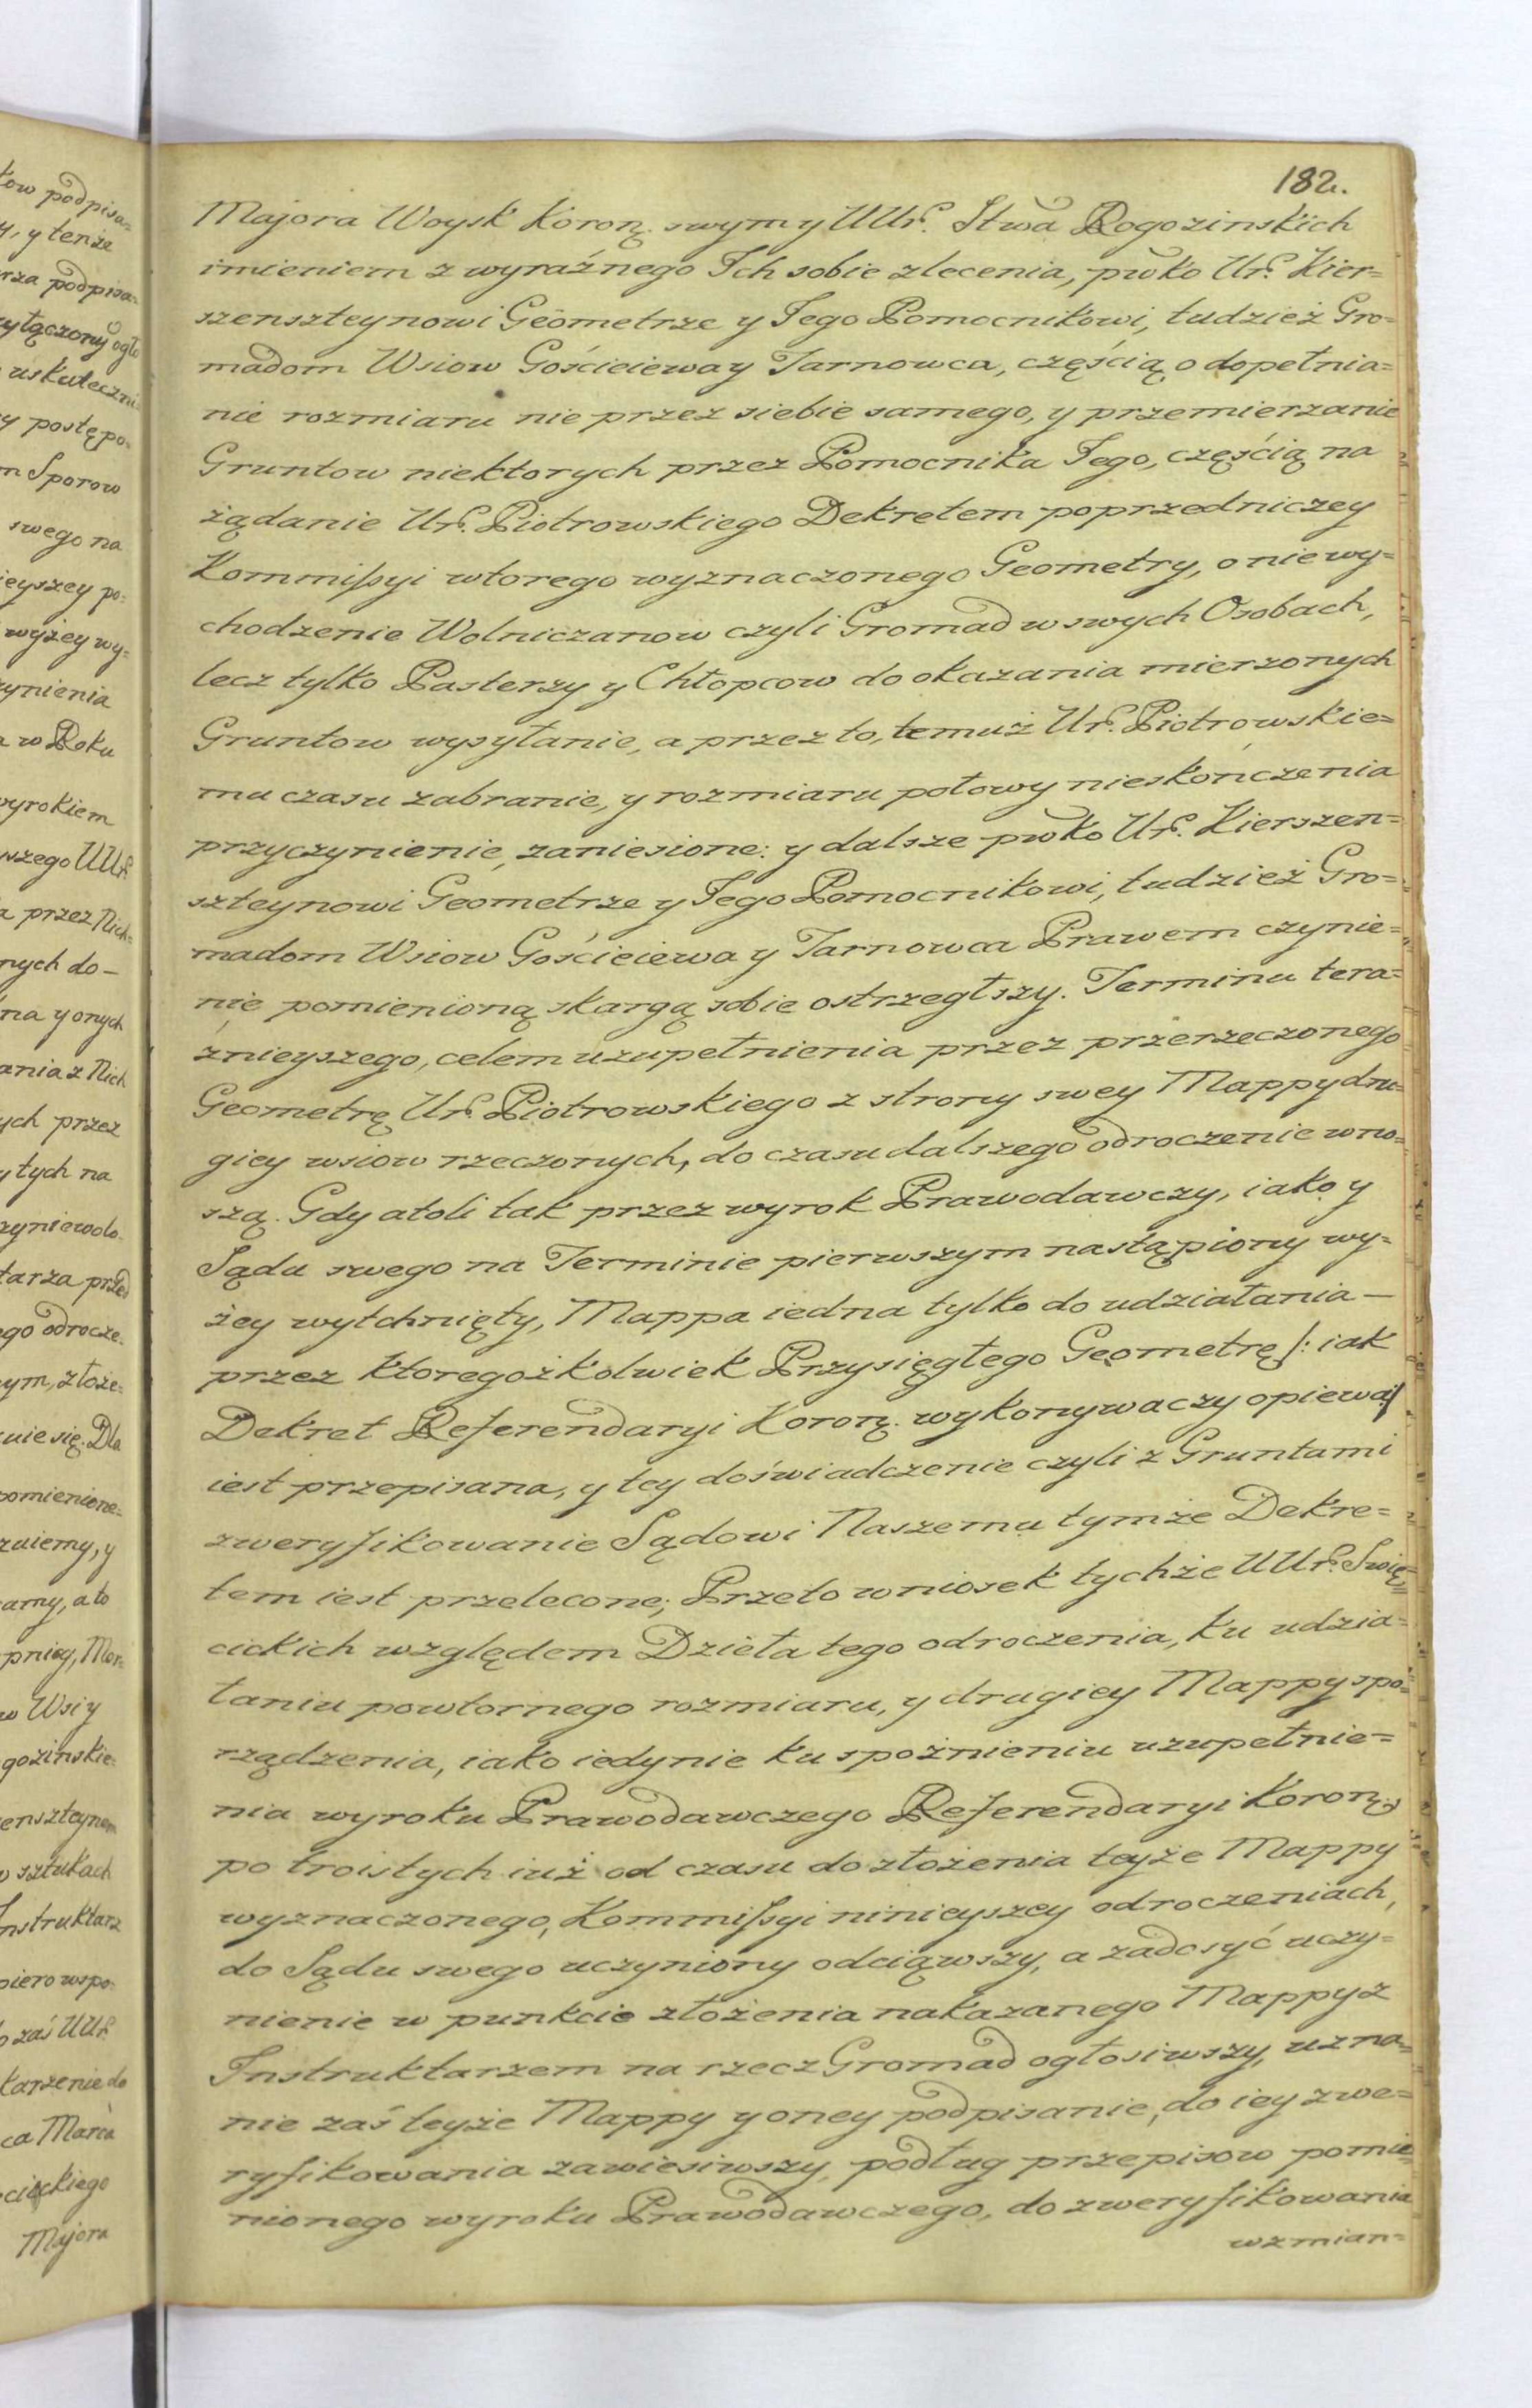 182.
Majora Woysk Koroñ. swym y UUr. Stwa Rogozinskich
imieniem z wyraźnego Ich sobie zlecenia, pwko Ur. Kier=
szenszteynowi Geometrze y Jego Pomocnikowi, tudzież Gro=
madom Wsiow Gościeiewa y Tarnowca, częścią o dopełnia=
nie rozmiaru nie przez siebie samego, y przemierzanie
Gruntow niektorych przez Pomocnika Jego, częścią na
żądanie Ur. Piotrowskiego Dekretem poprzedniczey
Kommissyi wtorego wyznaczonego Geometry, o niewy=
chodzenie Wolniczanow czyli Gromad w swych Osobach,
lecz tylko Pasterzy y Chłopcow do okazania mierzonych
Gruntow wysyłanie, a przez to, temuż Ur. Piotrowskie=
mu czasu zabranie, y rozmiaru połowy nieskończenia
przyczynienie, zaniesione: y dalsze pwko Ur. Kierszen=
szteynowi Geometrze y Jego Pomocnikowi, tudzież Gro=
madom Wsiow Gościeiewa y Tarnowca Prawem czynie=
nie pomienioną skargą sobie ostrzegłszy. Terminu tera=
źnieyszego, celem uzupełnienia przez przerzeczonego
Geometrę Ur. Piotrowskiego z strony swey Mappy dru=
giey wsiow rzeczonych, do czasu dalszego odroczenie wno=
szą. Gdy atoli tak przez wyrok Prawodawczy, iako y
Sądu swego na Terminie pierwszym nastąpiony wy=
żey wytchnięty, Mappa iedna tylko do udziałania —
przez ktoregożkolwiek Przysięgłego Geometrę /: iak
Dekret Referendaryi Koroñ. wykonywaczy opiewa:/
iest przepisana, y tey doświadczenie czyli z Gruntami
zweryfikowanie Sądowi Naszemu tymże Dekre=
tem iest przelecone; Przeto wniosek tychże UUr. Swię=
cickich względem Dzieła tego odroczenia, ku udzia=
łaniu powtornego rozmiaru, y drugiey Mappy spo=
rządzenia, iako iedynie ku spoźnieniu uzupełnie=
nia wyroku Prawodawczego Referendaryi Koroñ.
po troistych iuż od czasu do złożenia teyże Mappy
wyznaczonego, Kommissyi ninieyszey odroczeniach,
do Sądu swego uczyniony odciąwszy, a zadosyć uczy=
nienie w punkcie złożenia nakazanego Mappy z
Instruktarzem na rzecz Gromad ogłosiwszy, uzna=
nie zaś teyże Mappy y oney podpisanie, do iey zwe=
ryfikowania zawiesiwszy, podług przepisow pomie=
nionego wyroku Prawodawczego, do zweryfikowania
wzmian=